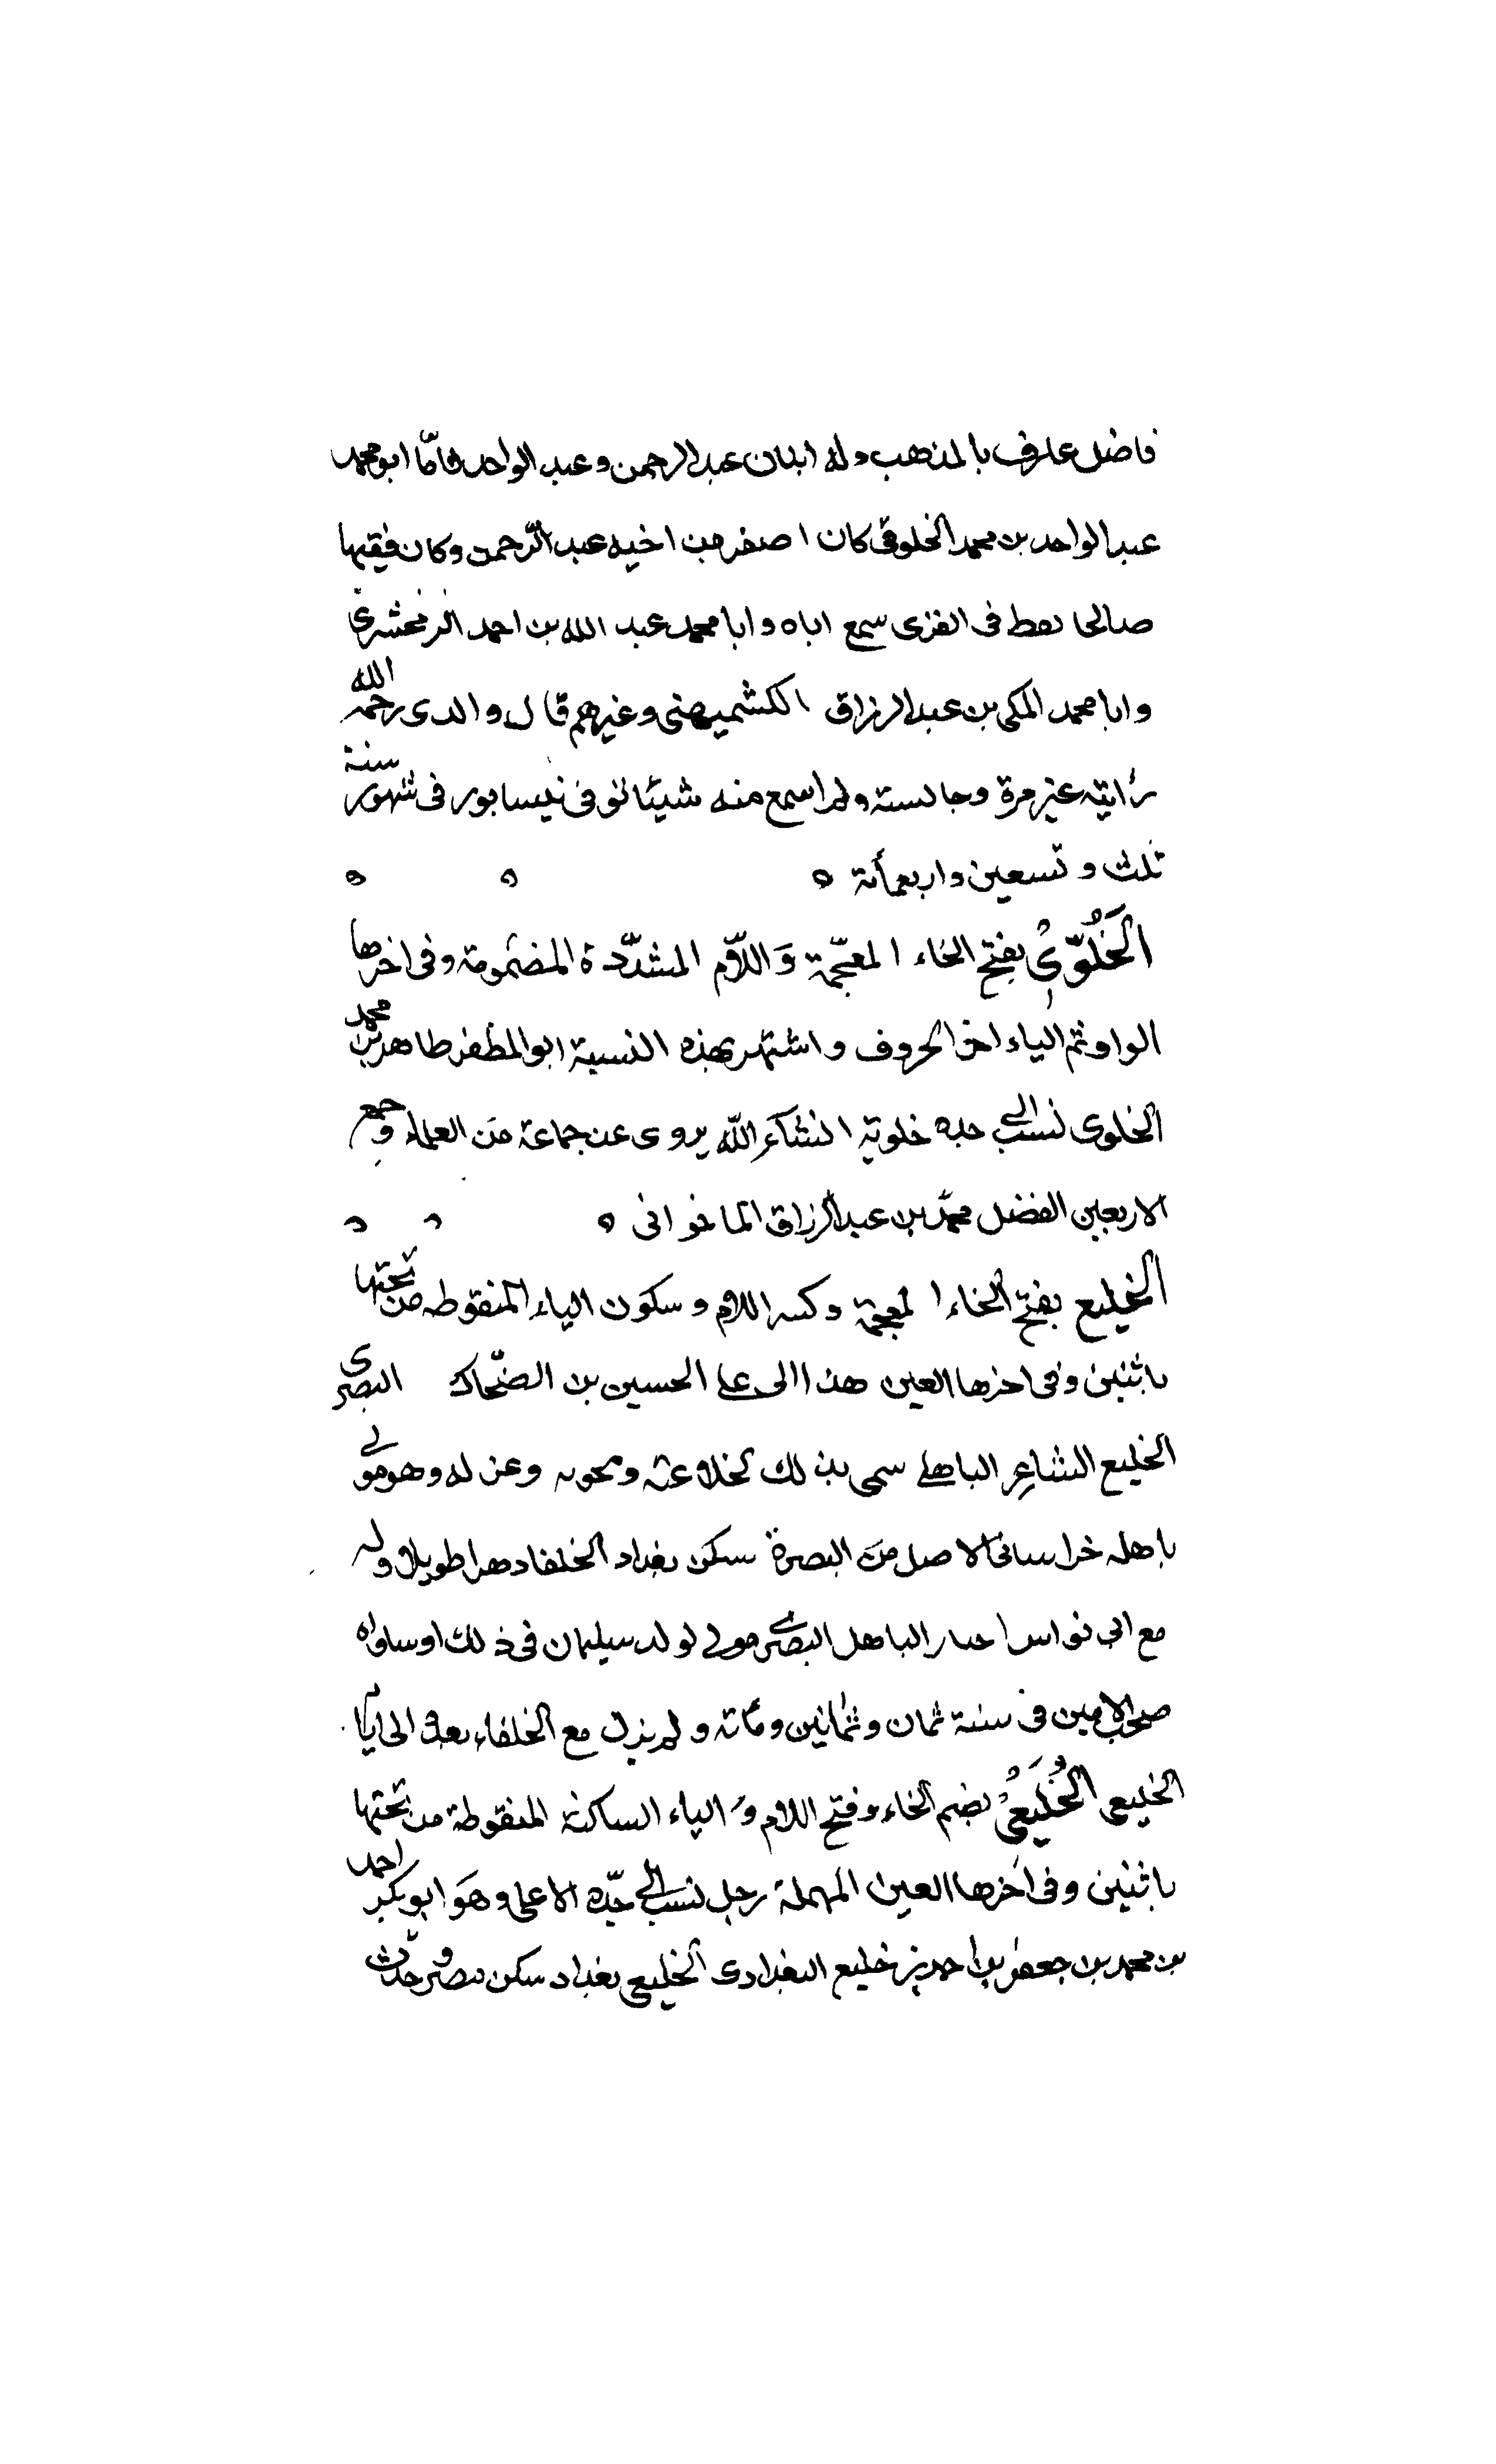 فاضل عارف بالمذهب وله ابنان عبد الرحمن وعبد الواحد فامّا ابو محمد
عبد الواحد بن محمد الخلوقى كان اصغر من اخيه عبد الرّحمن وكان فقيها
صالحا يعظ فى القرى سمع اباه وابا محمد عبد الله بن احمد الزمخشرى
وابا محمد المكى بن عبد الرزاق الكشميهنى وغيرهم قال والدى رحمه الله
رأيته غير مرة وجالسته ولم اسمع منه شيئا توفى نيسابور فى شهور سنة
ثلث وتسعين واربعمأئة
الخَلُّوىْ بفتح الخاء المعجّمة وَاللّام المشدّدة المضمومة وفى اخرها
الواو ثم الياء اخر الحروف واشتهر بهذه النسبة ابو المظفر طاهر بن محمد
الخلوى نسب الى جده خلوية انشآء الله يروى عن جماعة من العلماء وجمع
الاربعين الفضل محمّد بن عبد الرزاق الماخوانى
الخليع بفتح الخاء المعجمة وكسر اللام وسكون الياء المنقوطه من تحتها
باثنين وفى اخرها العين هذا الى على الحسين بن الضّحاك البصرى
الخليع الشاعر الباهلى سمى بذلك لخلاعته ومجونه وعزله وهو مولى
باهله خراسانى الاصل من البصرة سكن بغداد الخلفا دهرا طويلا وله
مع ابى نواس اخبار الباهل البصرى مولى لولد سليمان فى ذلك اوساواه
صحب الامين فى سنة ثمان وثمانين ومأئة ولم يزل مع الخلفاء بعده الى
الخليعى الخُلَيْعىْ بضم الخاء وفتح اللام وَ الياء الساكنة المنقوطة من تحتها
باثنين وفى اخرها العين المهملة رجل نسب الى جدّه الاعلى وهو ابو بكر احمد
بن محمد بن جعفر بن احمد بن خليع البغدادى الخليعى بغداد سكن مصر وحدّث